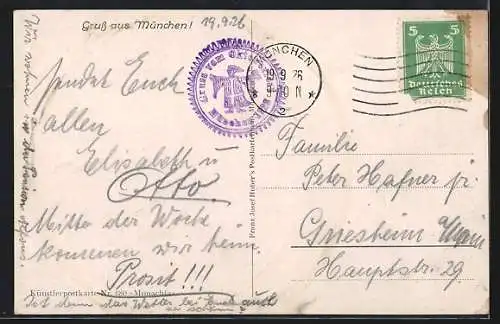 Gruß aus München!
19.9.26
sendet Euch
allen
Elisabeth u
Otto.
Mitte der Woche
kommen wir heim.
Prosit!!!
Künstlerpostkarte Nr.
Ist denn das Wetter bei Euch auch
so schön?
Wir wohnen in der Pension
Gruss vom
München
MÜNCHEN
19.9.26
2
5 5
Deutsches
Reich
Franz Josef Huber's
Familie
Peter Hafner jr.
Griesheim
Hauptstr. 29